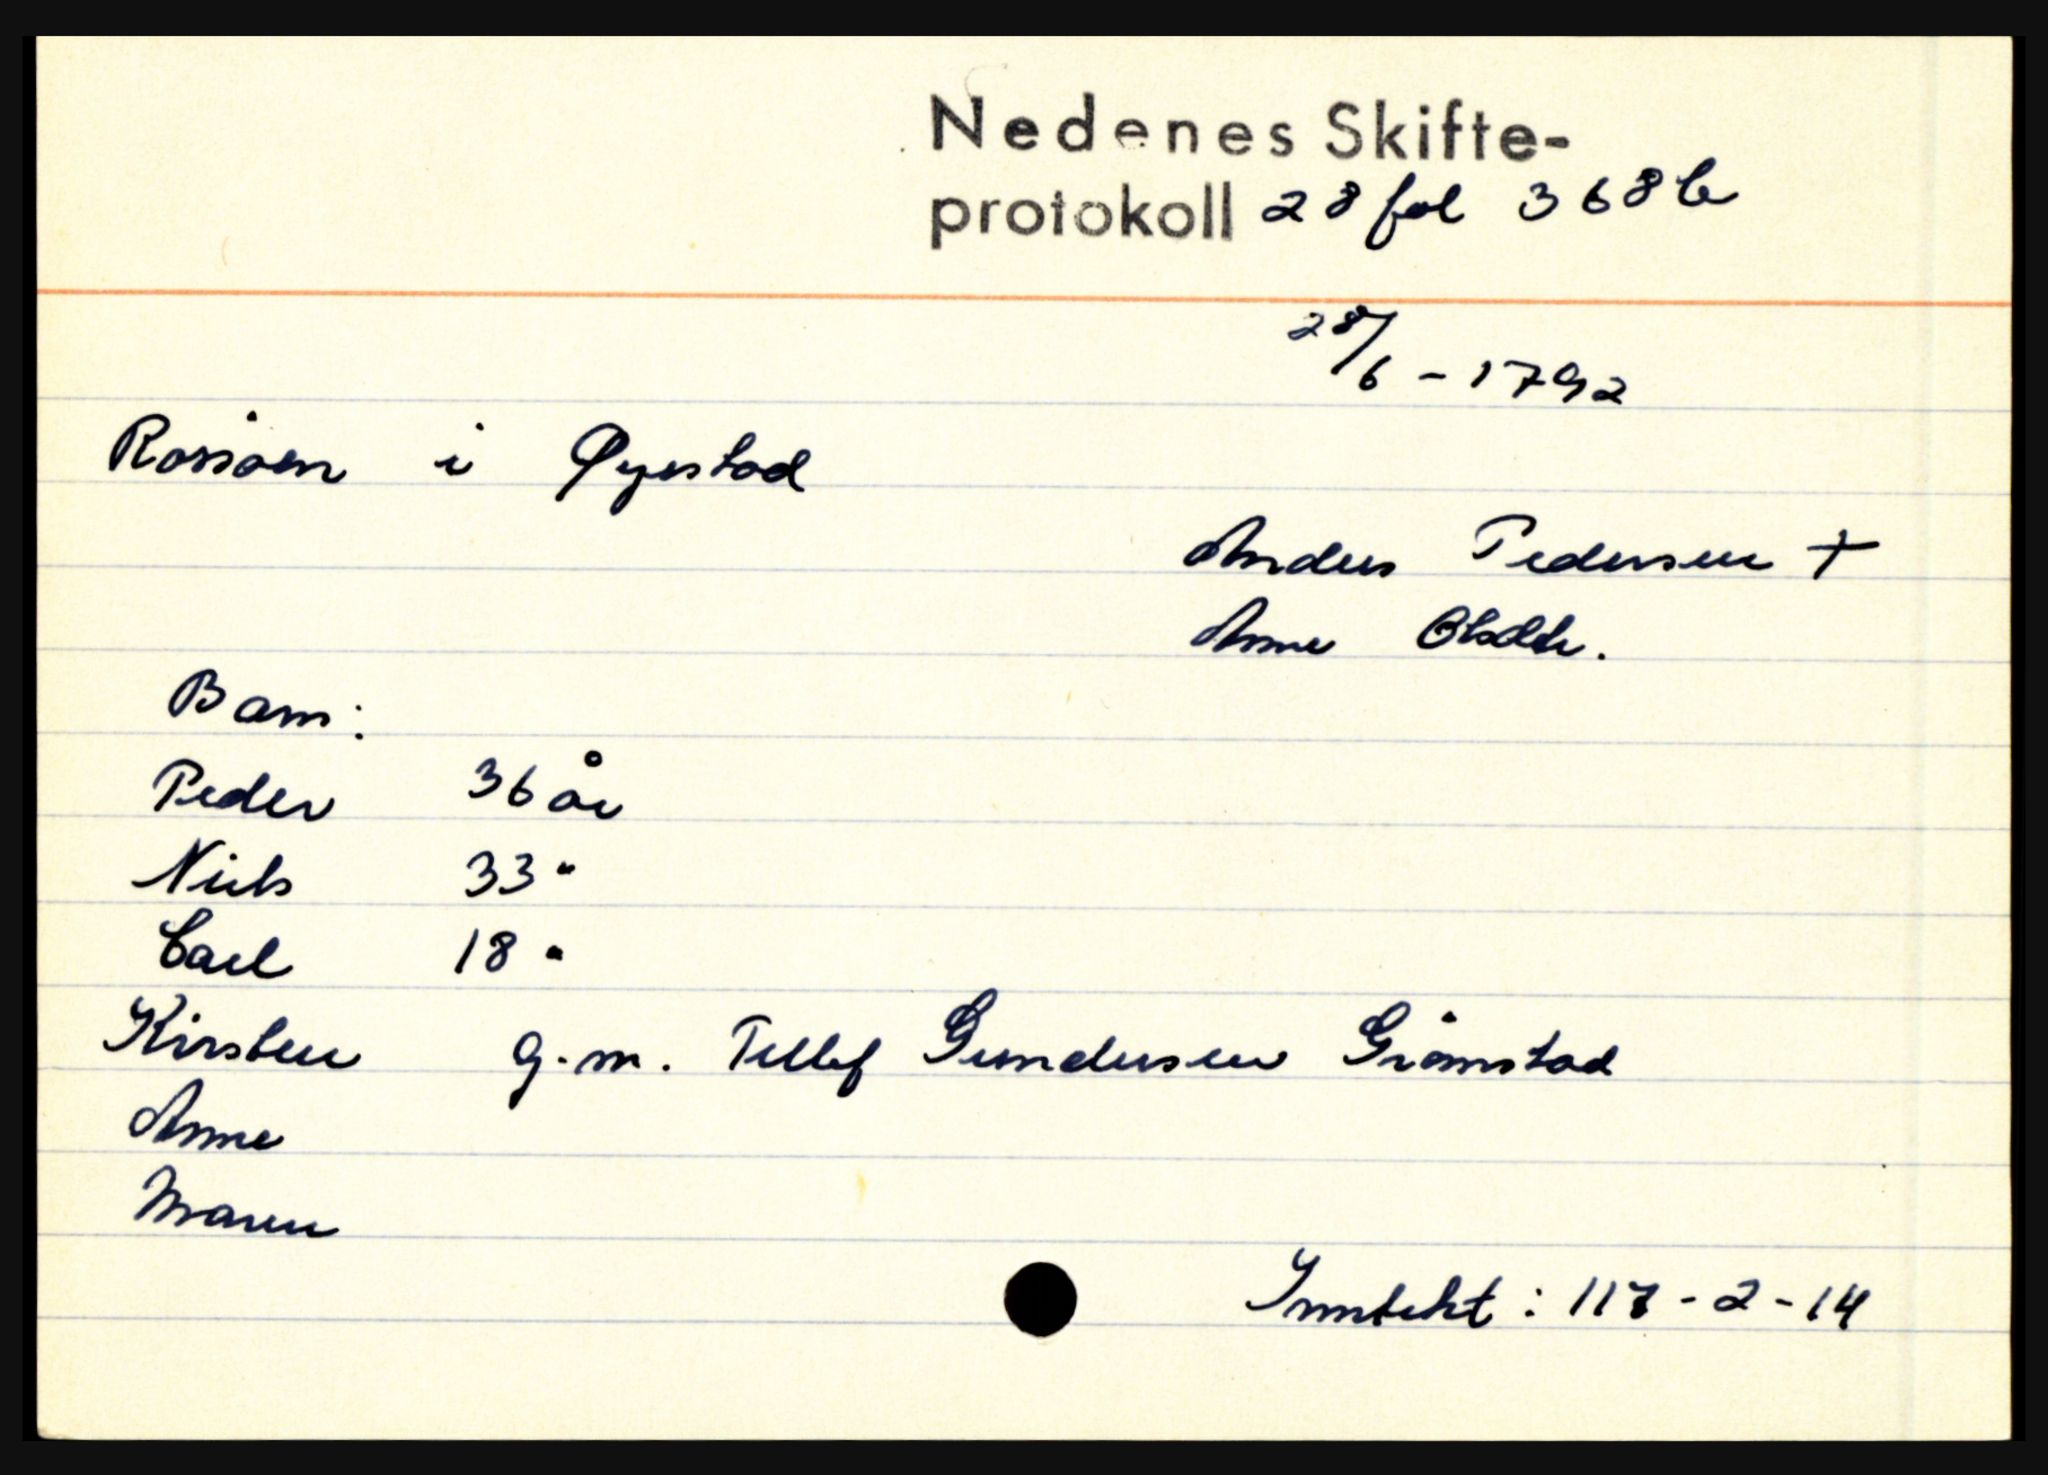 Nedenes Skifte-
protokoll 28 fol 368 b
28/6 - 1792
i Øyestad
Anders Pedersen +
Anne Olsdtr.
Barn:
Peder 36 år
Niels 33 "
Carl 18 "
Kirsten g.m. Tellef Gundersen Grimstad
Anne
Maren
Inntekt: 117-2-14